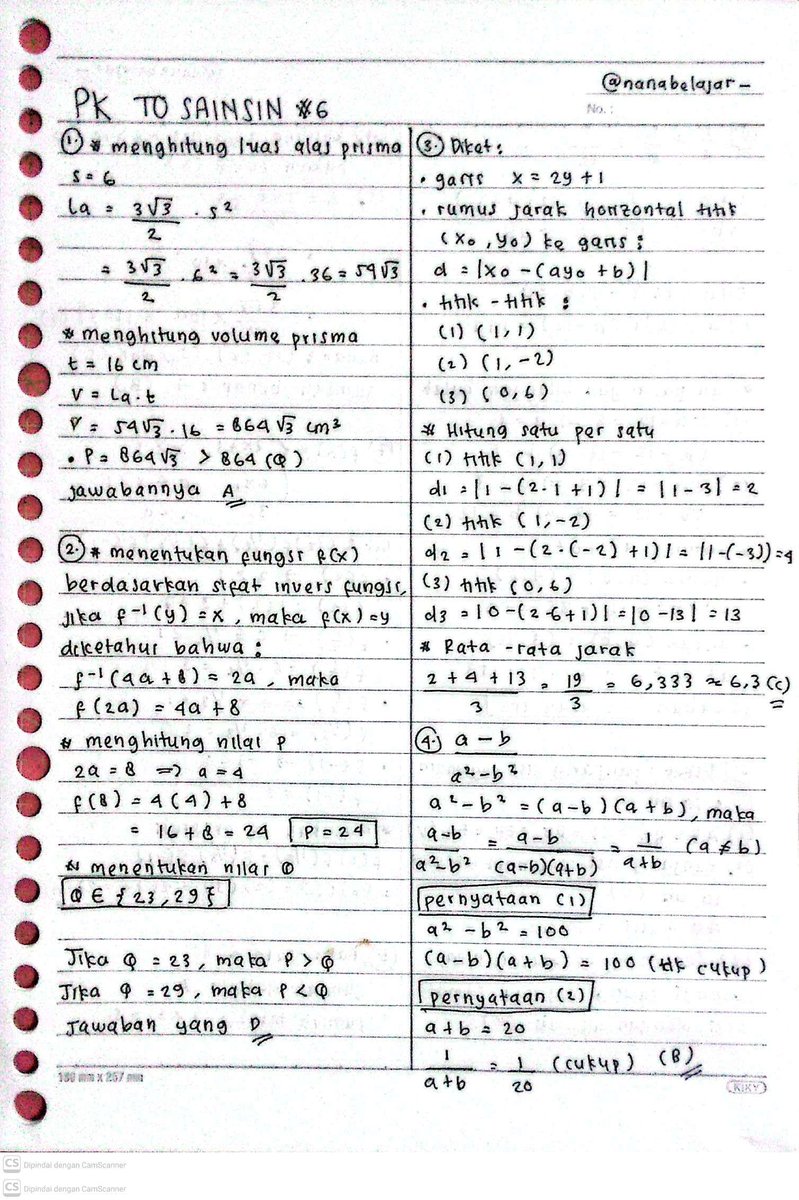 @nanabelajar_
No.:
PK TO SAINSIN #6
1. * menghitung luas alas prisma
s = 6
La = 3√3/2 . s²
= 3√3/2 . 6² = 3√3/2 . 36 = 54√3
* menghitung volume prisma
t = 16 cm
V = La . t
V = 54√3 . 16 = 864√3 cm³
• P = 864√3 > 864 (Q)
jawabannya A
2. * menentukan fungsi f(x)
berdasarkan sifat invers fungsi,
jika f⁻¹(y) = x, maka f(x) = y
diketahui bahwa :
f⁻¹(4a + 8) = 2a, maka
f(2a) = 4a + 8
* menghitung nilai P
2a = 8 => a = 4
f(8) = 4(4) + 8
= 16 + 8 = 24 P = 24
* menentukan nilai Q
Q ∈ {23, 29}
Jika Q = 23, maka P > Q
Jika Q = 29, maka P < Q
Jawaban yang D
3. Diket :
• garis x = 2y + 1
• rumus jarak horizontal titik
(x₀, y₀) ke garis :
d = |x₀ - (ay₀ + b)|
• titik - titik :
(1) (1, 1)
(2) (1, -2)
(3) (0, 6)
* Hitung satu per satu
(1) titik (1, 1)
d1 = |1 - (2·1 + 1)| = |1 - 3| = 2
(2) titik (1, -2)
d2 = |1 - (2·(-2) + 1)| = |1-(-3)) = 4
(3) titik (0, 6)
d3 = |0 - (2·6 + 1)| = |0 - 13| = 13
* Rata - rata jarak
2 + 4 + 13/3 = 19/3 = 6,333 ≈ 6,3 (C)
4. a - b
a² - b²
a² - b² = (a - b)(a + b), maka
a-b/a²-b² = a-b/(a-b)(a+b) = 1/a+b (a ≠ b)
pernyataan (1)
a² - b² = 100
(a - b)(a + b) = 100 (tdk cukup)
pernyataan (2)
a + b = 20
1/a+b = 1/20 (cukup) (B)
180 mm x 257 mm
KIKY
CS Dipindai dengan CamScanner
CS Dipindai dengan CamScanner